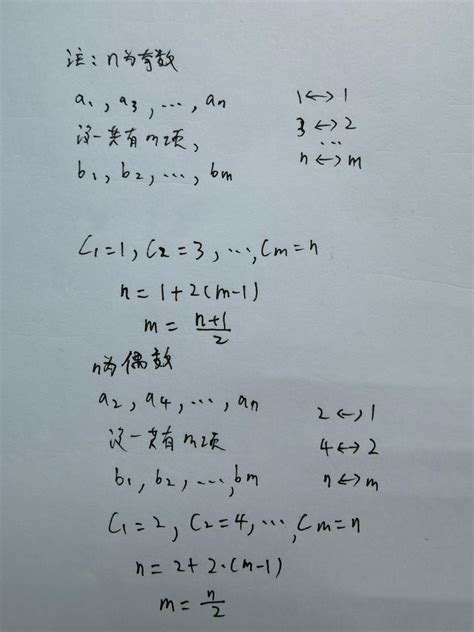 注：n为奇数
a₁，a₃，…，aₙ 1↔1
没一共有m项， 3↔2
…
b₁，b₂，…，bm n↔m
C₁=1，C₂=3，…，Cm=n
n=1+2(m-1)
m=\frac{n+1}{2}
n为偶数
a₂，a₄，…，aₙ 2↔1
没一共有m项 4↔2
b₁，b₂，…，bm n↔m
C₁=2，C₂=4，…，Cm=n
n=2+2·(m-1)
m=\frac{n}{2}